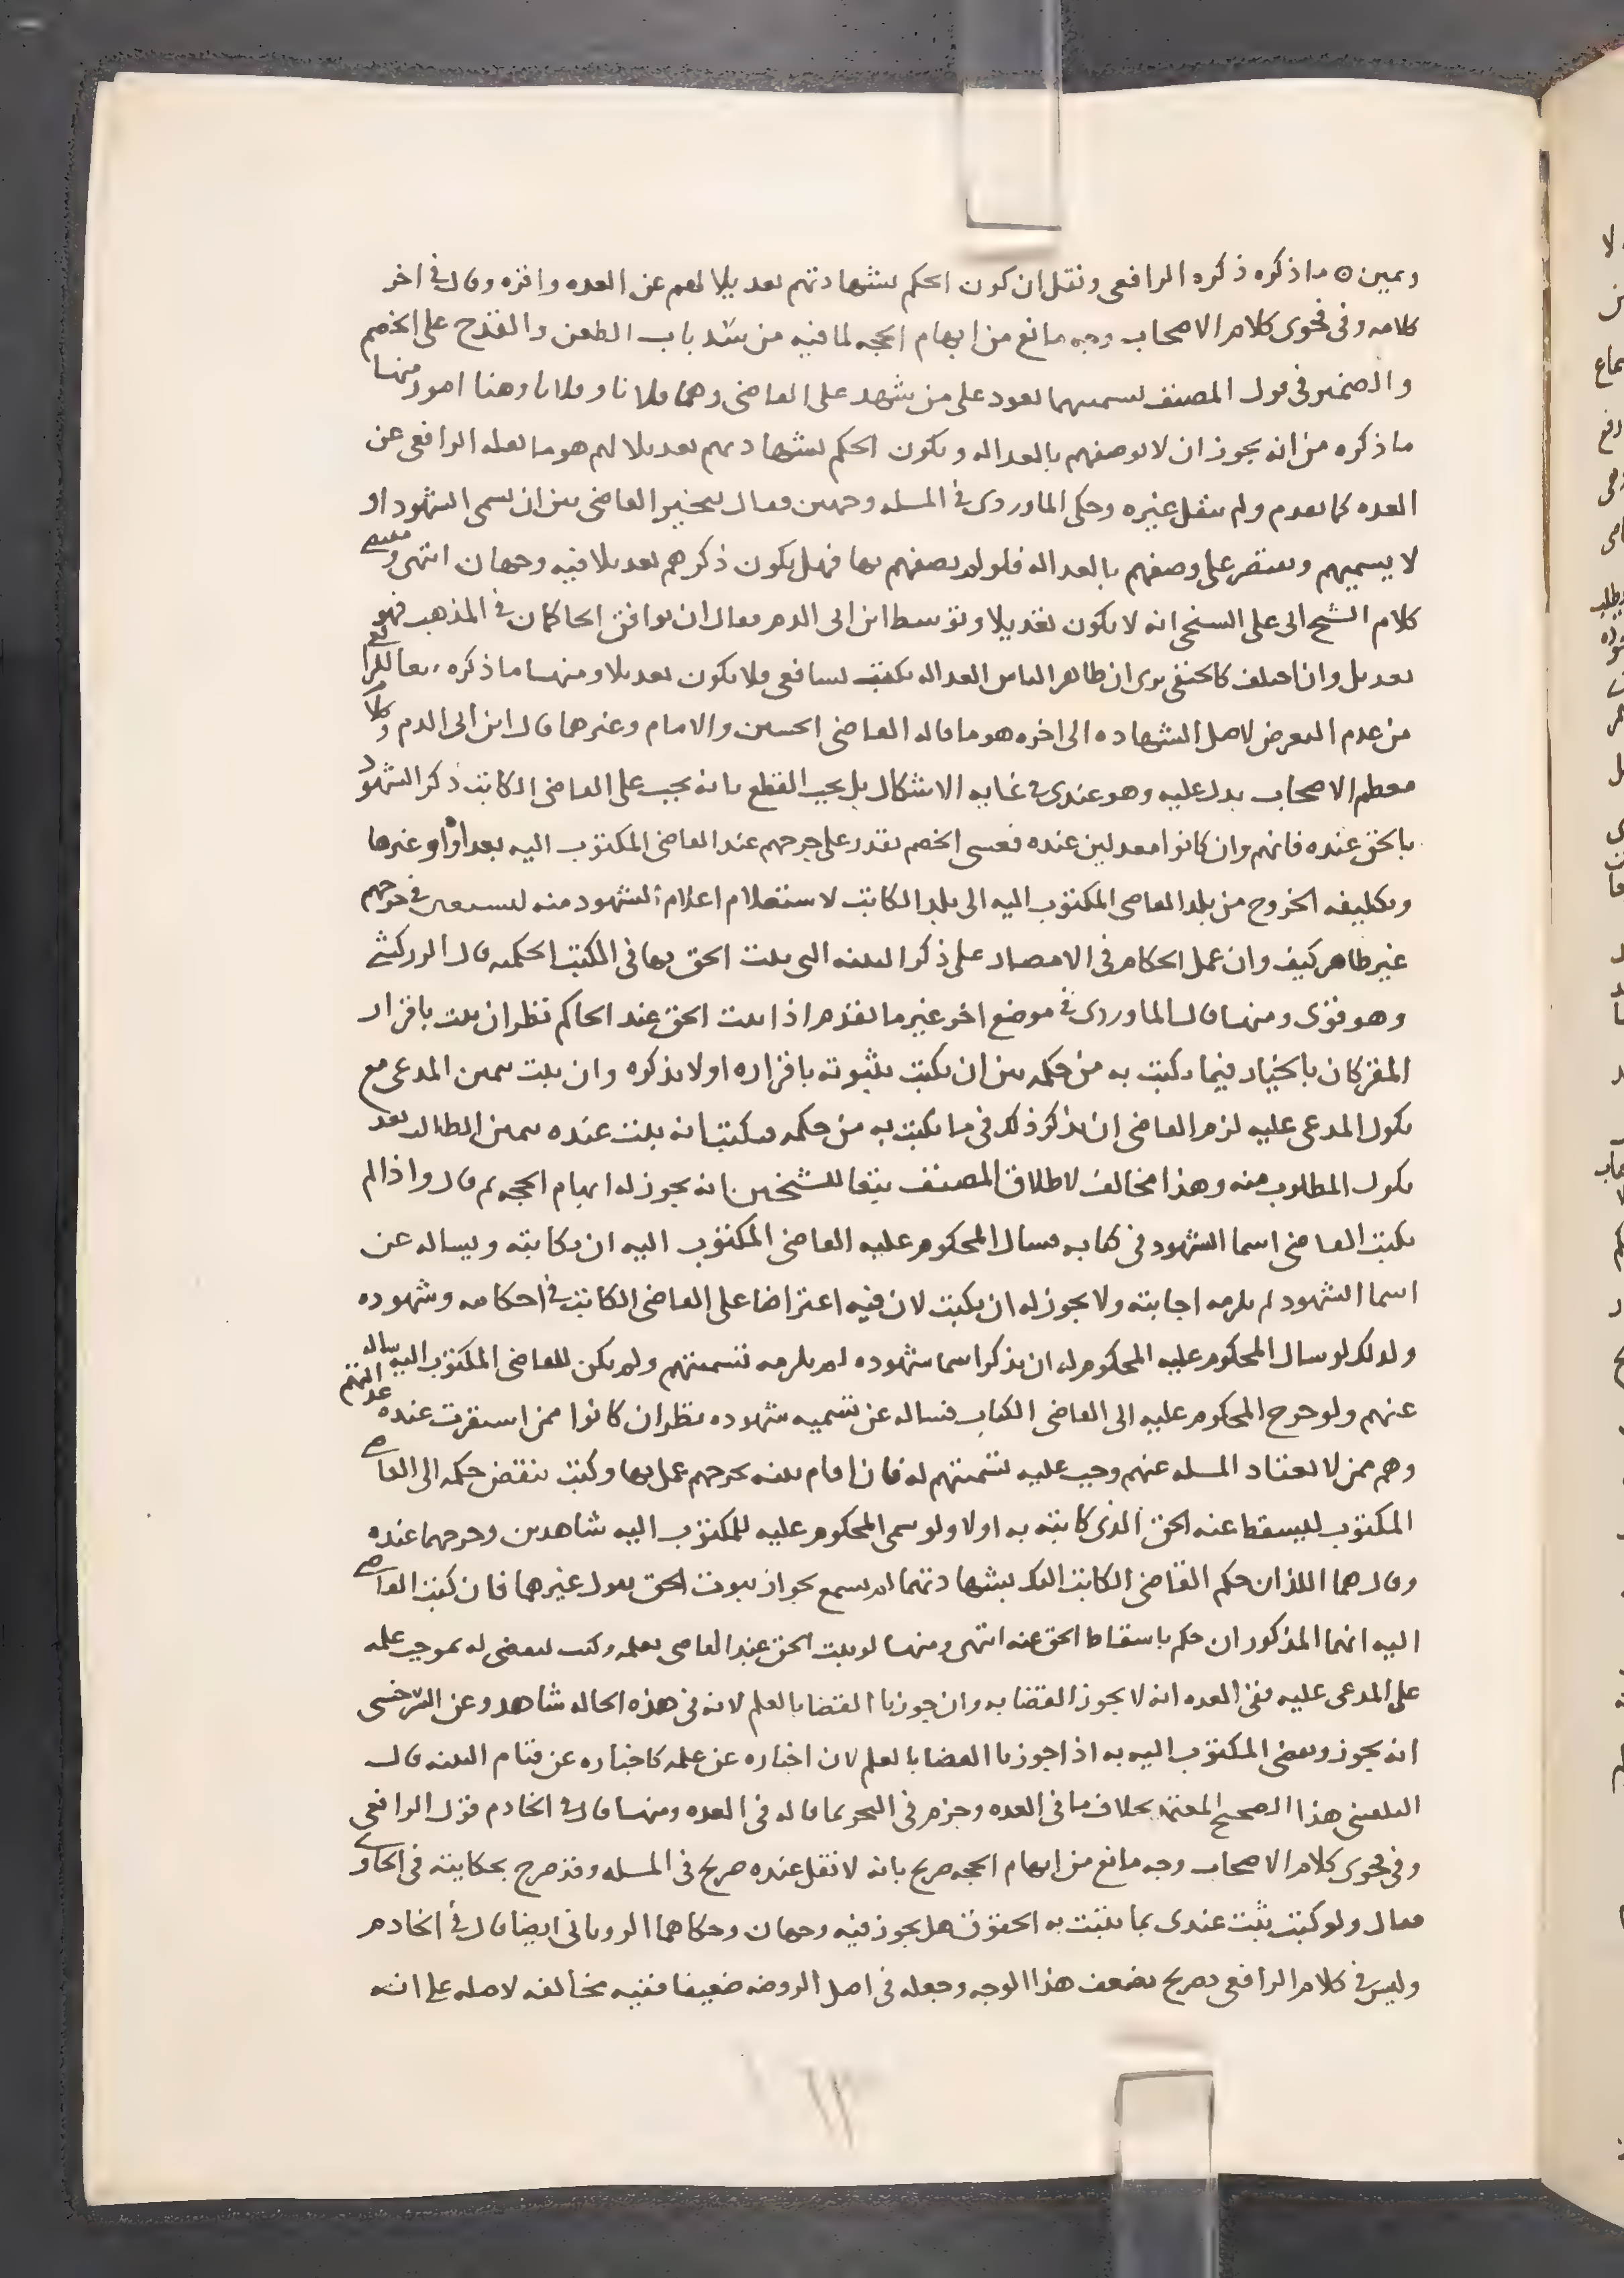 ويمين ۞ ما ذكره ذكره الرافعي ونقل ان كون الحكم بشهادتهم تعديلا لهم عن العده واقره وقال في اخر
كلامه وفي فحوى كلام الاصحاب وجه مانع من ابهام الحجه لما فيه من سد باب الطعن والقدح على الخصم
والضمير في قول المصنف تسميتهما يعود على من شهد على القاضي وهما فلانا وفلانا وهنا امور منها
ما ذكره من انه يجوز ان لا يوصفهم بالعداله ويكون الحكم بشهادتهم تعديلا لهم هو ما نقله الرافعي عن
العده كما تقدم ولم ينقل غيره وحكى الماوردي في المسله وجهين فقال يتخير القاضي بين ان يسمي الشهود او
لا يسميهم ويقتصر على وصفهم بالعداله فلو لم يصفهم بها فهل يكون ذكرهم تعديلا فيه وجهان انتهى وقضيه
كلام الشيخ ابى على السنجي انه لا يكون تعديلا وتوسط ابن ابى الدم فقال ان توافق الحاكمان في المذهب فهو
تعديل وان اختلف كالحنفي يرى ان ظاهر الناس العداله يكتب لشافعي فلا يكون تعديلا ومنها ما ذكره تبعا للرافعي
من عدم التعرض لاصل الشهاده الى اخره هو ما قاله القاضي الحسين والامام وغيرهما قال ابن ابى الدم وكلام
معظم الاصحاب يدل عليه وهو عندي في غايه الاشكال بل يجب القطع بانه يجب على القاضي الكاتب ذكر الشهود
بالحق عنده فانهم وان كانوا معدلين عنده فعسى الخصم يقدر على جرحهم عند القاضي المكتوب اليه بعداوه او غيرها
وتكليفه الخروج من بلد القاضي المكتوب اليه الى بلد الكاتب لاستعلام اعلام الشهود منه ليسعى في جرحهم
غير ظاهر كيف وان عمل الحكام في الامصار على ذكر البينه التي يثبت الحق بها في الكتب الحكميه قال الزركشي
وهو قوي ومنها قال الماوردي في موضع اخر غير ما تقدم اذا ثبت الحق عند الحاكم نظر ان ثبت باقرار
المقر كان بالخيار فيما يكتب به من حكمه بين ان يكتب بثبوته باقراره او لا يذكره وان ثبت بيمين المدعي مع
نكول المدعى عليه لزم القاضي ان يذكر ذلك في ما يكتب به من حكمه فيكتب انه يثبت عنده بيمين الطالب بعد
نكول المطلوب منه وهذا مخالف لاطلاق المصنف تبعا للشيخين انه يجوز له ابهام الحجه ثم قال واذا لم
يكتب القاضي اسما الشهود في كتابه فسال المحكوم عليه القاضي المكتوب اليه ان يكاتبه ويساله عن
اسما الشهود لم يلزمه اجابته ولا يجوز له ان يكتب لان فيه اعتراضا على القاضي الكاتب في احكامه وشهوده
ولذلك لو سال المحكوم عليه المحكوم له ان يذكر اسما شهوده لم يلزمه تسميتهم ولم يكن للقاضي المكتوب اليه يساله
عنهم ولو خرج المحكوم عليه الى القاضي الكاتب فساله عن تسميه شهوده ينظر ان كانوا ممن استقرت عنده عدالتهم
وهم ممن لا يعتاد المسله عنهم وجب عليه تسميتهم له فان اقام بينه بجرحهم عمل بها وكتب بنقض حكمه الى القاضي
المكتوب ليسقط عنه الحق الذي كاتبه به اولا ولو سمى المحكوم عليه للمكتوب اليه شاهدين وجرحهما عنده
وقال هما اللذان حكم القاضي الكاتب اليك بشهادتهما لم يسمع لجواز ثبوت الحق بقول غيرهما فان كتب القاضي
اليه انهما المذكوران حكم باسقاط الحق عنه انتهى ومنها لو ثبت الحق عند القاضي بعلمه وكتب ليقضي له بموجب علمه
على المدعى عليه ففي العده انه لا يجوز القضا به وان جوزنا القضا بالعلم لانه في هذه الحاله شاهد وعن السرخسي
انه يجوز ويقضي المكتوب اليه به اذا جوزنا القضا بالعلم لان اخباره عن علمه كاخباره عن قيام البينه قال
البلقيني هذا الصحيح المعتمد بخلاف ما في العده وجزم في البحر بما قاله في العده ومنها قال في الخادم قول الرافعي
وفي فحوى كلام الاصحاب وجه مانع من ابهام الحجه صريح بانه لا نقل عنده صريح في المسله وقد صرح بحكايته في الحاوي
فقال ولو كتب ثبت عندي بما يثبت به الحقوق هل يجوز فيه وجهان وحكاهما الروياني ايضا قال في الخادم
وليس في كلام الرافعي تصريح بضعف هذا الوجه وجعله في اصل الروضه ضعيفا ففيه مخالفه لاصله على انه